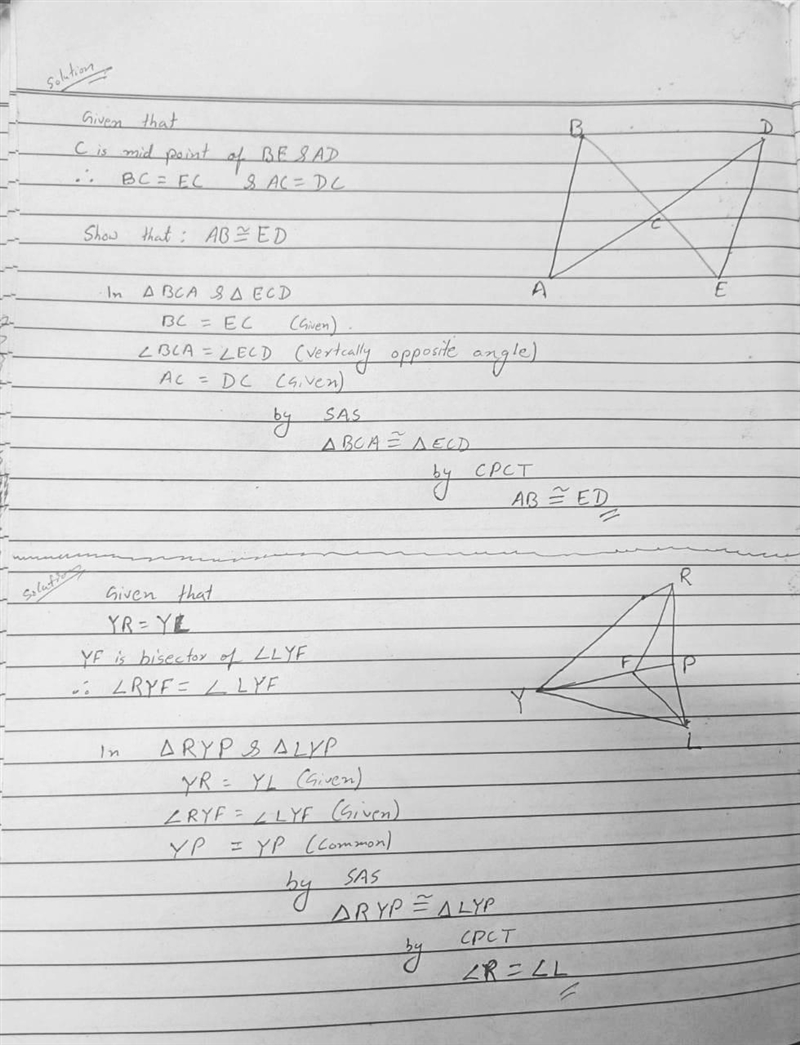 Solution
Given that
C is mid point of BE & AD
∴ BC = EC & AC = DC
Show that : AB ≅ ED
In △ BCA & △ ECD
BC = EC (Given).
∠BCA = ∠ECD (vertcally opposite angle)
AC = DC (Given)
by SAS
△ BCA ≅ △ ECD
by CPCT
AB ≅ ED
B D
C
A E
Solution
Given that
YR = YL
YF is bisector of ∠LYF
∴ ∠RYF = ∠ LYF
In △RYP & △LYP
YR = YL (Given)
∠RYF = ∠LYF (Given)
YP = YP (Common)
by SAS
△RYP ≅ △LYP
by CPCT
∠R = ∠L
R
F P
Y
L